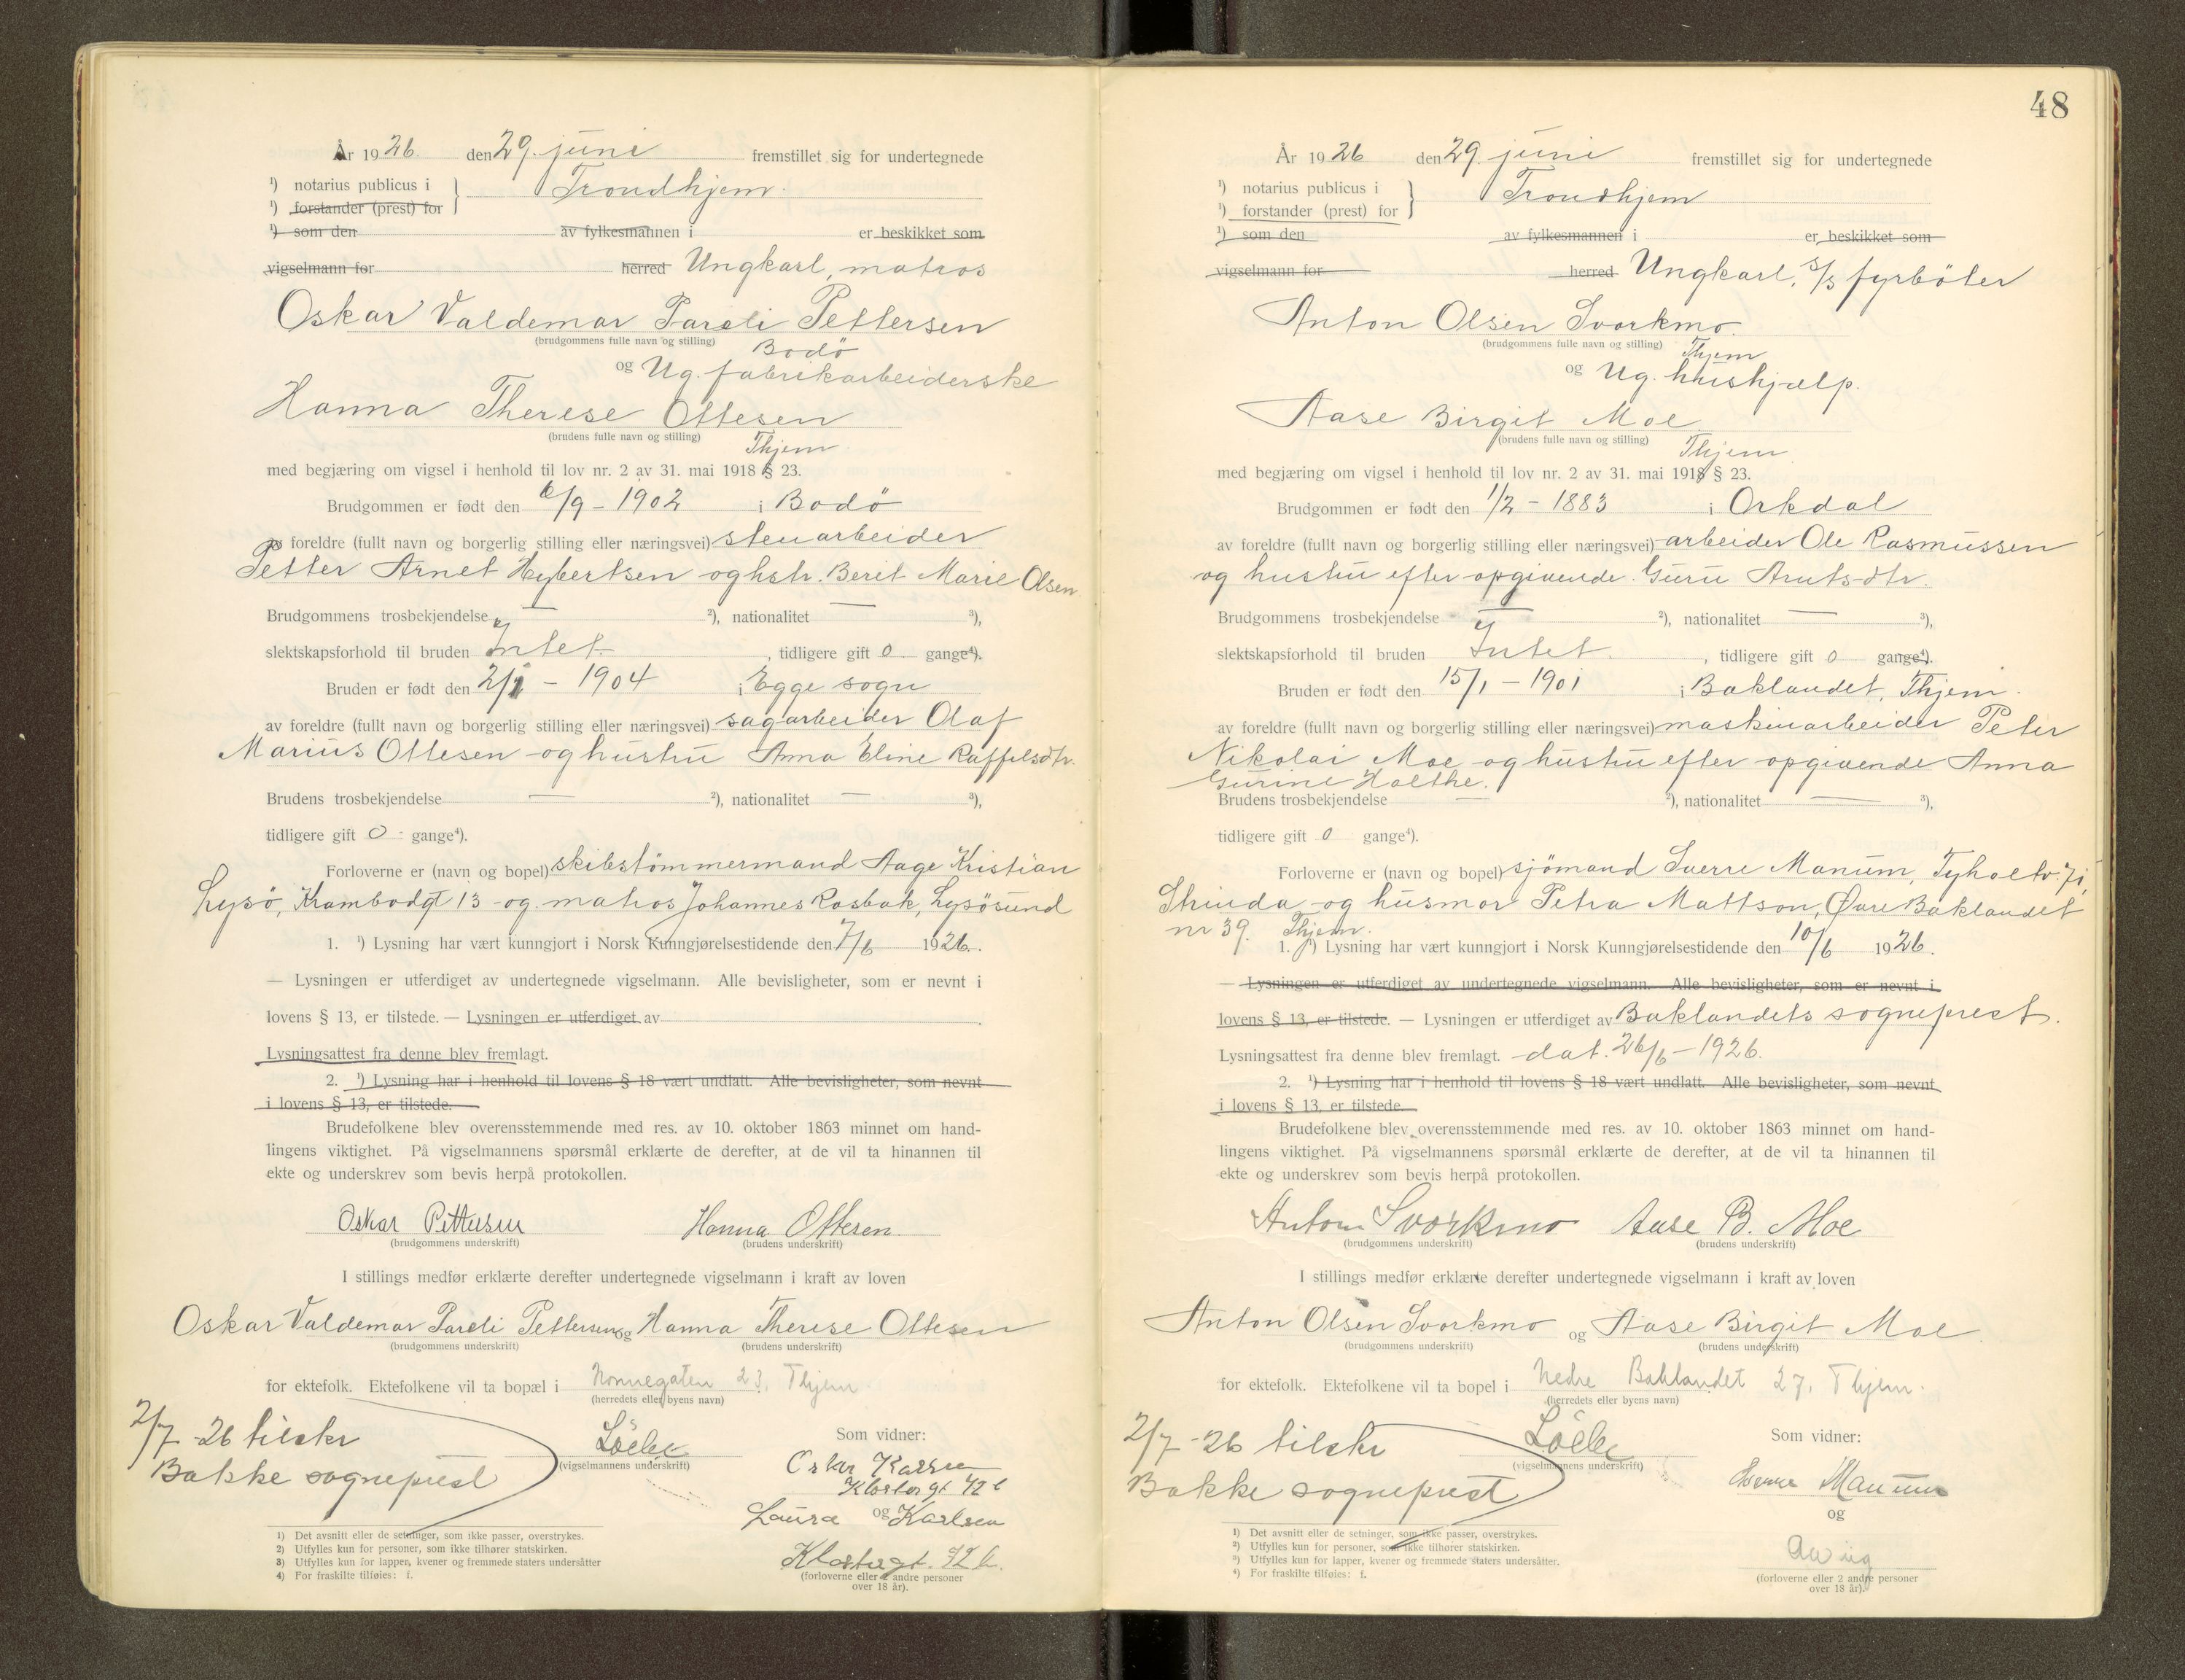 År 1926 den 29. juni fremstillet sig for undertegnede
¹) notarius publicus i } Trondhjem.
¹) forstander (prest) for
¹) som den av fylkesmannen i er beskikket som
vigselmann for herred Ungkarl, matros
Oskar Valdemar Pareli Pettersen
(brudgommens fulle navn og stilling) Bodø
og Ug. fabrikarbeiderske
Hanna Therese Ottesen
(brudens fulle navn og stilling) Thjem
med begjæring om vigsel i henhold til lov nr. 2 av 31. mai 1918 § 23.
Brudgommen er født den 6/9 - 1902 i Bodø
av foreldre (fullt navn og borgerlig stilling eller næringsvei) stenarbeider
Petter Arnet Hybertsen og hstr. Berit Marie Olsen
Brudgommens trosbekjendelse — ²), nationalitet — ³),
slektskapsforhold til bruden Intet , tidligere gift 0 gange⁴).
Bruden er født den 2/1 - 1904 i Egge sogn
av foreldre (fullt navn og borgerlig stilling eller næringsvei) sagarbeider Olaf
Marius Ottesen og hustru Anna Eline Raffelsdtr.
Brudens trosbekjendelse — ²), nationalitet — ³),
tidligere gift 0 - gange⁴).
Forloverne er (navn og bopel) skibstömmermand Aage Kristian
Lysø, Krambodgt 13 og matros Johannes Rosbak, Lysøsund
1. ¹) Lysning har vært kunngjort i Norsk Kunngjørelsestidende den 7/6 1926.
— Lysningen er utferdiget av undertegnede vigselmann. Alle bevisligheter, som er nevnt i
lovens § 13, er tilstede. — Lysningen er utferdiget av
Lysningsattest fra denne blev fremlagt.
2. ¹) Lysning har i henhold til lovens § 18 vært undlatt. Alle bevisligheter, som nevnt
i lovens § 13, er tilstede.
Brudefolkene blev overensstemmende med res. av 10. oktober 1863 minnet om hand-
lingens viktighet. På vigselmannens spørsmål erklærte de derefter, at de vil ta hinannen til
ekte og underskrev som bevis herpå protokollen.
Oskar Pettersen Hanna Ottesen.
(brudgommens underskrift) (brudens underskrift)
I stillings medfør erklærte derefter undertegnede vigselmann i kraft av loven
Oskar Valdemar Pareli Pettersen og Hanna Therese Ottesen
(brudgommens underskrift) (brudens underskrift)
for ektefolk. Ektefolkene vil ta bopæl i Nonnegaten 23, Thjem
(herredets eller byens navn)
2/7 - 26 tilskr
Bakke sogneprest
(vigselmannens underskrift)
Som vidner:
Oskar Karlsen
Klostergt 42 b
og Laura Karlsen
Klostergt. 42 b.
(forloverne eller 2 andre personer
over 18 år).
1) Det avsnitt eller de setninger, som ikke passer, overstrykes.
2) Utfylles kun for personer, som ikke tilhører statskirken.
3) Utfylles kun for lapper, kvener og fremmede staters undersåtter
4) For fraskilte tilføies: f.
48
År 1926 den 29. juni fremstillet sig for undertegnede
¹) notarius publicus i } Trondhjem
¹) forstander (prest) for
¹) som den av fylkesmannen i er beskikket som
vigselmann for herred Ungkarl, s/s fyrbøter
Anton Olsen Svorkmo.
(brudgommens fulle navn og stilling) Thjem
og Ug. hushjælp.
Aase Birgit Moe
(brudens fulle navn og stilling) Thjem
med begjæring om vigsel i henhold til lov nr. 2 av 31. mai 1918 § 23.
Brudgommen er født den 1/2 - 1883 i Orkdal
av foreldre (fullt navn og borgerlig stilling eller næringsvei) arbeider Ole Rasmussen
og hustru efter opgivende Guru Arntsdtr.
Brudgommens trosbekjendelse — ²), nationalitet — ³),
slektskapsforhold til bruden Intet. , tidligere gift 0 gange⁴).
Bruden er født den 15/1 - 1901 i Baklandet, Thjem.
av foreldre (fullt navn og borgerlig stilling eller næringsvei) maskinarbeider Peter
Nikolai Moe og hustru efter opgivende Anna
Gurine Holthe.
Brudens trosbekjendelse — ²), nationalitet — ³),
tidligere gift 0 gange⁴).
Forloverne er (navn og bopel) sjömand Sverre Manum, Tyholtv. 71,
Strinda og husmor Petra Mattson, Øvre Baklandet
nr 39. Thjem.
1. ¹) Lysning har vært kunngjort i Norsk Kunngjørelsestidende den 10/6 1926.
— Lysningen er utferdiget av undertegnede vigselmann. Alle bevisligheter, som er nevnt i
lovens § 13, er tilstede. — Lysningen er utferdiget av Baklandets sogneprest.
Lysningsattest fra denne blev fremlagt. dat. 26/6 - 1926.
2. ¹) Lysning har i henhold til lovens § 18 vært undlatt. Alle bevisligheter, som nevnt
i lovens § 13, er tilstede.
Brudefolkene blev overensstemmende med res. av 10. oktober 1863 minnet om hand-
lingens viktighet. På vigselmannens spørsmål erklærte de derefter, at de vil ta hinannen til
ekte og underskrev som bevis herpå protokollen.
Anton Svorkmo Aase B. Moe
(brudgommens underskrift) (brudens underskrift)
I stillings medfør erklærte derefter undertegnede vigselmann i kraft av loven
Anton Olsen Svorkmo og Aase Birgit Moe
(brudgommens underskrift) (brudens underskrift)
for ektefolk. Ektefolkene vil ta bopel i Nedre Baklandet 27, Thjem.
(herredets eller byens navn)
2/7 - 26 tilskr
Bakke sogneprest
(vigselmannens underskrift)
Som vidner:
Sverre Manum
og
(forloverne eller 2 andre personer
over 18 år).
1) Det avsnitt eller de setninger, som ikke passer, overstrykes.
2) Utfylles kun for personer, som ikke tilhører statskirken.
3) Utfylles kun for lapper, kvener og fremmede staters undersåtter.
4) For fraskilte tilføies: f.